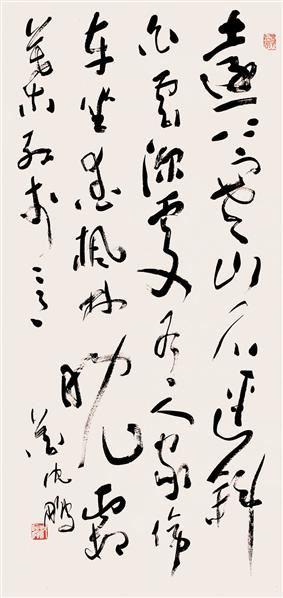 遠上寒山石徑斜
白雲深處有人家停
車坐愛楓林晚霜
葉紅於二月花沈鵬